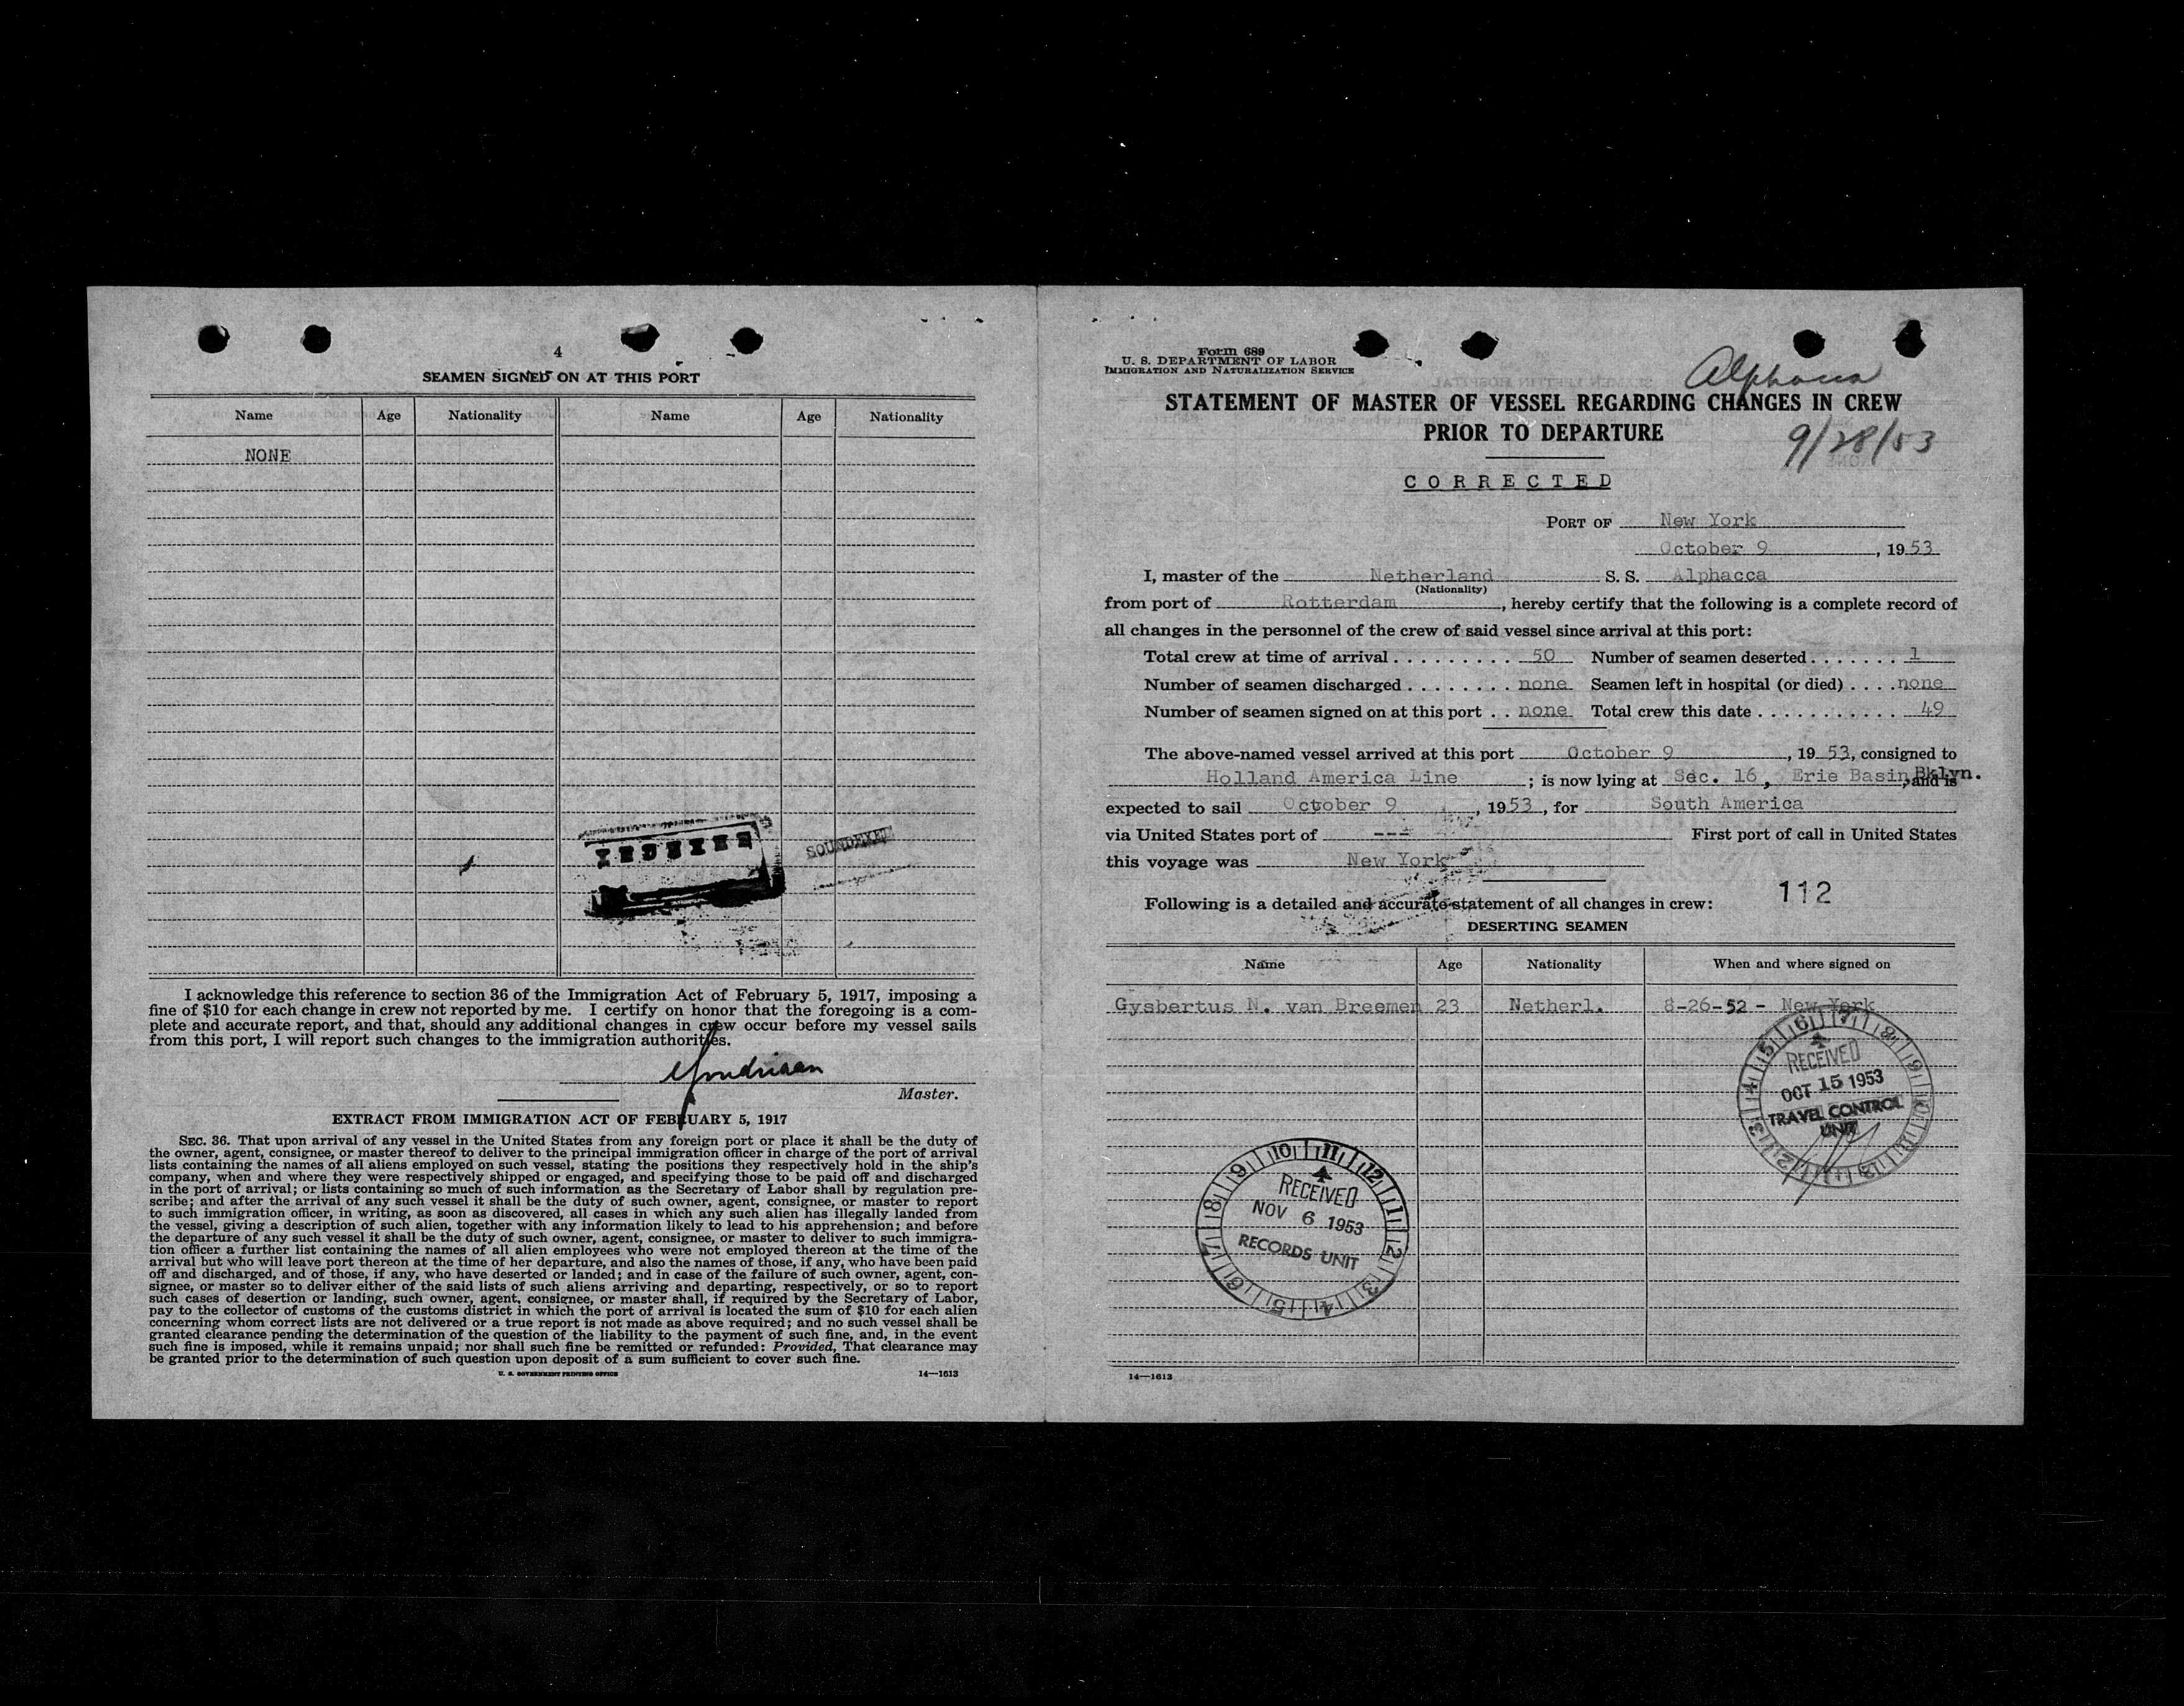 4
SEAMEN SIGNED ON AT THIS PORT
Name Age Nationality Name Age Nationality
NONE
INDEXED
SOUNDEXED
I acknowledge this reference to section 36 of the Immigration Act of February 5, 1917, imposing a
fine of $10 for each change in crew not reported by me. I certify on honor that the foregoing is a com-
plete and accurate report, and that, should any additional changes in crew occur before my vessel sails
from this port, I will report such changes to the immigration authorities.
Master.
EXTRACT FROM IMMIGRATION ACT OF FEBRUARY 5, 1917
SEC. 36. That upon arrival of any vessel in the United States from any foreign port or place it shall be the duty of
the owner, agent, consignee, or master thereof to deliver to the principal immigration officer in charge of the port of arrival
lists containing the names of all aliens employed on such vessel, stating the positions they respectively hold in the ship's
company, when and where they were respectively shipped or engaged, and specifying those to be paid off and discharged
in the port of arrival; or lists containing so much of such information as the Secretary of Labor shall by regulation pre-
scribe; and after the arrival of any such vessel it shall be the duty of such owner, agent, consignee, or master to report
to such immigration officer, in writing, as soon as discovered, all cases in which any such alien has illegally landed from
the vessel, giving a description of such alien, together with any information likely to lead to his apprehension; and before
the departure of any such vessel it shall be the duty of such owner, agent, consignee, or master to deliver to such immigra-
tion officer a further list containing the names of all alien employees who were not employed thereon at the time of the
arrival but who will leave port thereon at the time of her departure, and also the names of those, if any, who have been paid
off and discharged, and of those, if any, who have deserted or landed; and in case of the failure of such owner, agent, con-
signee, or master so to deliver either of the said lists of such aliens arriving and departing, respectively, or so to report
such cases of desertion or landing, such owner, agent, consignee, or master shall, if required by the Secretary of Labor,
pay to the collector of customs of the customs district in which the port of arrival is located the sum of $10 for each alien
concerning whom correct lists are not delivered or a true report is not made as above required; and no such vessel shall be
granted clearance pending the determination of the question of the liability to the payment of such fine, and, in the event
such fine is imposed, while it remains unpaid; nor shall such fine be remitted or refunded: Provided, That clearance may
be granted prior to the determination of such question upon deposit of a sum sufficient to cover such fine.
U. S. GOVERNMENT PRINTING OFFICE 14—1613
Form 689
U. S. DEPARTMENT OF LABOR
IMMIGRATION AND NATURALIZATION SERVICE
STATEMENT OF MASTER OF VESSEL REGARDING CHANGES IN CREW
PRIOR TO DEPARTURE
9/28/53
CORRECTED
PORT OF New York
October 9, 1953
I, master of the Netherland S. S. Alphacca
(Nationality)
from port of Rotterdam, hereby certify that the following is a complete record of
all changes in the personnel of the crew of said vessel since arrival at this port:
Total crew at time of arrival . . . . . . . . . 50 Number of seamen deserted . . . . . . . 1
Number of seamen discharged . . . . . . . . none Seamen left in hospital (or died) . . . . none
Number of seamen signed on at this port . . none Total crew this date . . . . . . . . . . . 49
The above-named vessel arrived at this port October 9, 1953, consigned to
Holland America Line; is now lying at Sec. 16, Erie Basin, Bklyn. and is
expected to sail October 9, 1953, for South America
via United States port of --- First port of call in United States
this voyage was New York
112
Following is a detailed and accurate statement of all changes in crew:
DESERTING SEAMEN
Name Age Nationality When and where signed on
Gysbertus N. van Breemen 23 Netherl. 8-26-52 - New York
RECEIVED
OCT 15 1953
TRAVEL CONTROL
UNIT
RECEIVED
NOV 6 1953
RECORDS UNIT
14—1613